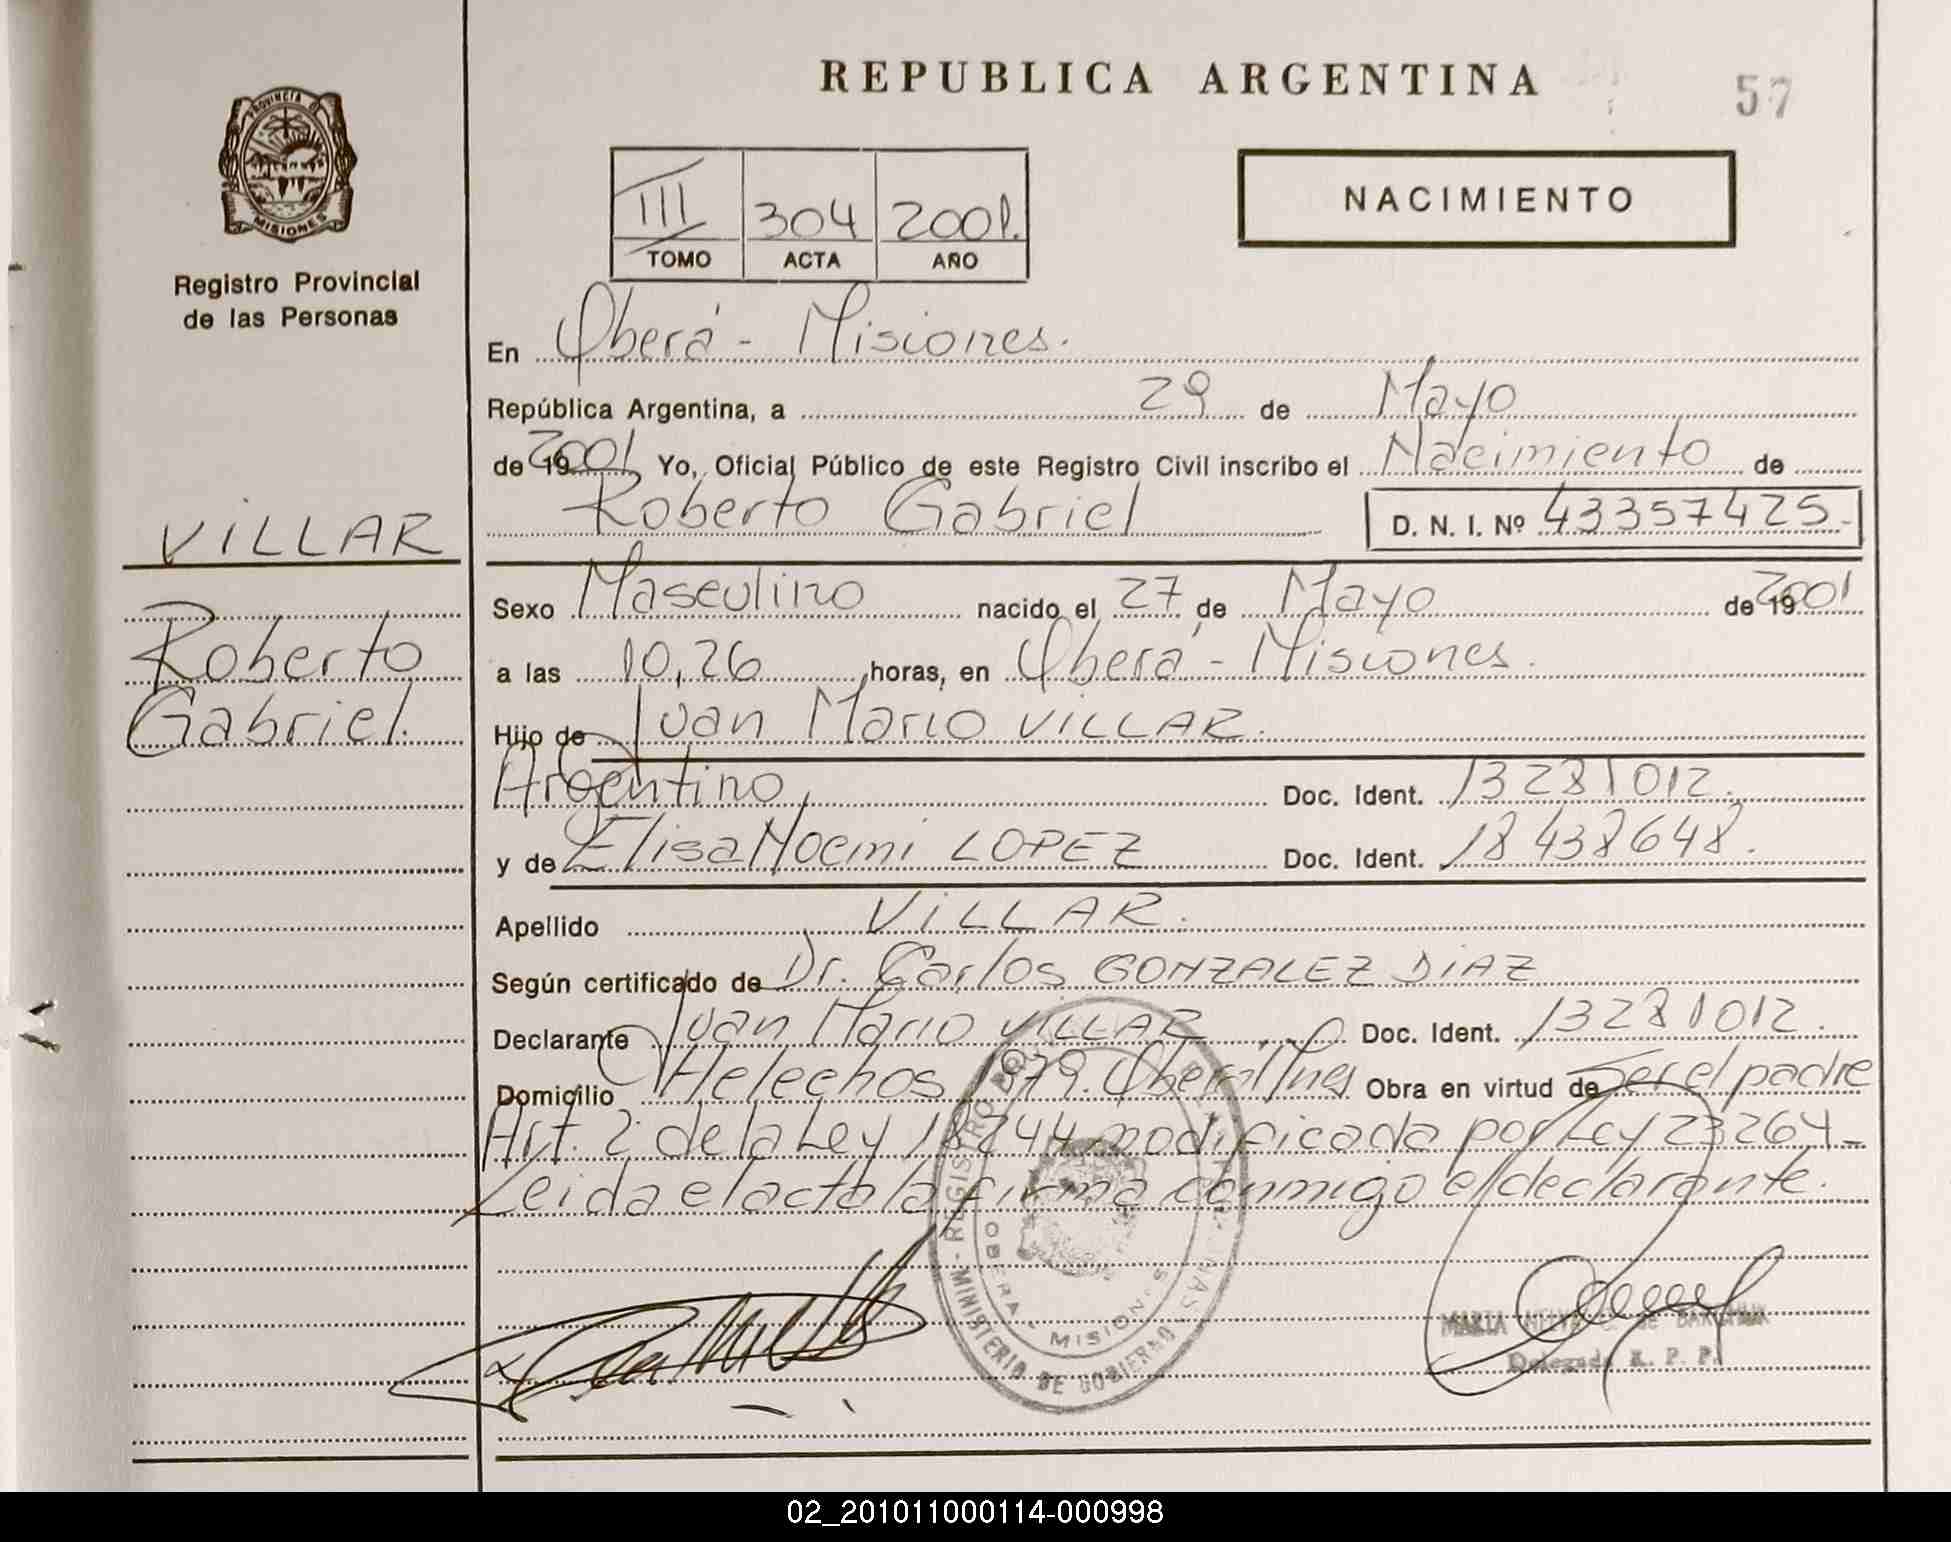 REPUBLICA ARGENTINA
57
PROVINCIA DE
MISIONES
Registro Provincial
de las Personas
III 304 2001.
TOMO ACTA AÑO
NACIMIENTO
En Oberá - Misiones.
República Argentina, a 29 de Mayo
de 19 2001 Yo, Oficial Público de este Registro Civil inscribo el Nacimiento de
Roberto Gabriel D. N. I. Nº 43357425-
VILLAR
Roberto
Gabriel.
Sexo Masculino nacido el 27 de Mayo de 19 2001
a las 10,26 horas, en Oberá - Misiones.
Hijo de Juan Mario VILLAR.
Argentino, Doc. Ident. 13281012.
y de Elisa Noemi LOPEZ Doc. Ident. 18438648.
Apellido VILLAR.
Según certificado de Dr. Carlos GONZALEZ DIAZ
Declarante Juan Mario VILLAR Doc. Ident. 13281012.
Domicilio Helechos 1979. Oberá Mnes Obra en virtud de Ser el padre
Art. 2 de la Ley 18244 modificada por Ley 23264-
Leida el acta la firma conmigo el declarante.
OBERA - MISIONES
MINISTERIO DE GOBIERNO
MARIA
Delegada R. P. P.
02_201011000114-000998